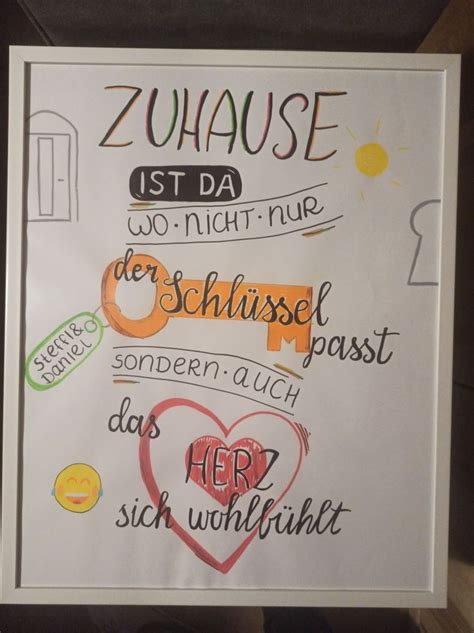 ZUHAUSE
IST DA
WO·NICHT·NUR
der Schlüssel
passt
Steffi &
Daniel
SONDERN·AUCH
das
HERZ
sich wohlfühlt